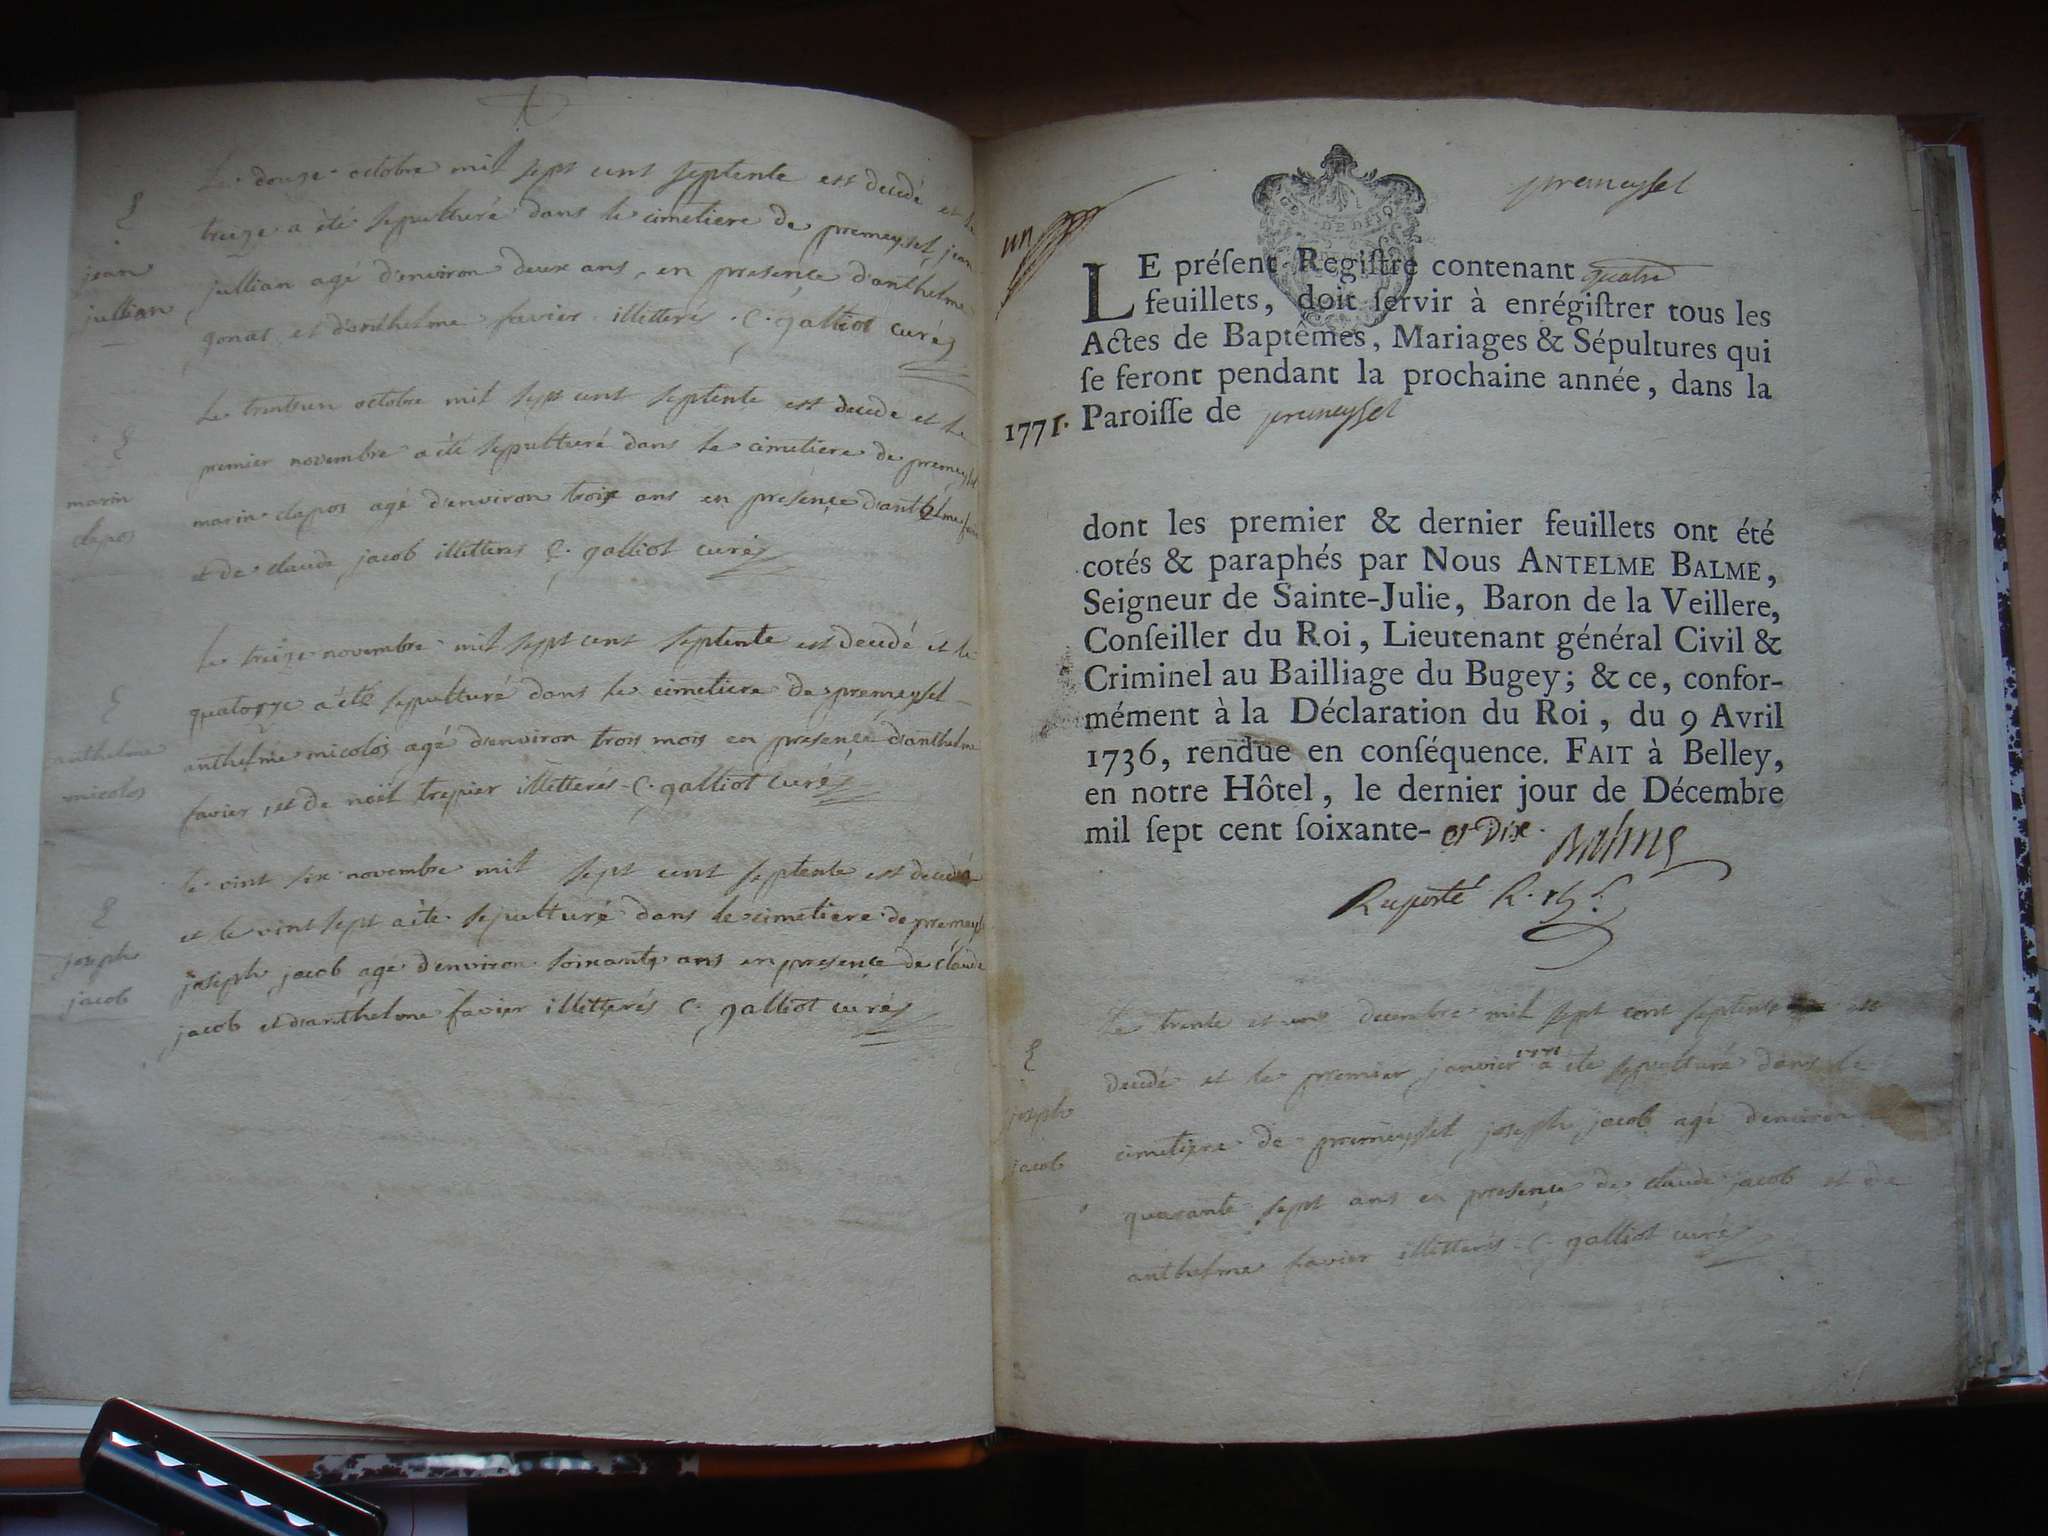 Le douze octobre mil sept cent septente est decedé et le
treize a été sepulturé dans le cimetiere de premeysel, jean
jean
jullian
jullian agé d'environ deux ans, en presençe d'anthelme
gonat et d'anthelme favier illitterés. C. galliot curé
Le trenteun octobre mil sept cent septente est decede et le
premier novembre a été sepulturé dans le cimetiere de premeyssel
marin
clapos
marin clapos agé d'environ trois ans en présençe d'anthelme
et de claude jacob illitteres C. galliot curé
Le treize novembre mil sept cent septente est decedé et le
quatorze a été sepulturé dans le cimetiere de premeyssel
anthelme
micolos
anthelme micolos agé d'environ trois mois en presençe d'anthelme
favier, et de noël trepier illitterés C. galliot curé
le vint six novembre mil sept cent septente est decedé
et le vint sept a été sepulturé dans le cimetiere de premeys
joseph
jacob
joseph jacob agé d'environ soixante ans en presençe de claude
jacob et d'anthelme favier illitterés C. galliot curé
premeyssel
un
LE préſent Regiſtre contenant quatre
feuillets, doit ſervir à enrégiſtrer tous les
Actes de Baptêmes, Mariages & Sépultures qui
ſe feront pendant la prochaine année, dans la
1771. Paroiſſe de premeyssel
dont les premier & dernier feuillets ont été
cotés & paraphés par Nous ANTELME BALME,
Seigneur de Sainte-Julie, Baron de la Veillere,
Conſeiller du Roi, Lieutenant général Civil &
Criminel au Bailliage du Bugey; & ce, confor-
mément à la Déclaration du Roi, du 9 Avril
1736, rendue en conſéquence. FAIT à Belley,
en notre Hôtel, le dernier jour de Décembre
mil ſept cent ſoixante- et Dix. Balme
Raporté
Le trente et un decembre mil sept cent septente est
decedé et le premier janvier 1771 a été sepulturé dans le
joseph
jacob
cimetiere de premeyssel joseph jacob agé d'environ
quarante sept ans en presençe de claude jacob et de
anthelme favier illitterés C. galliot curé